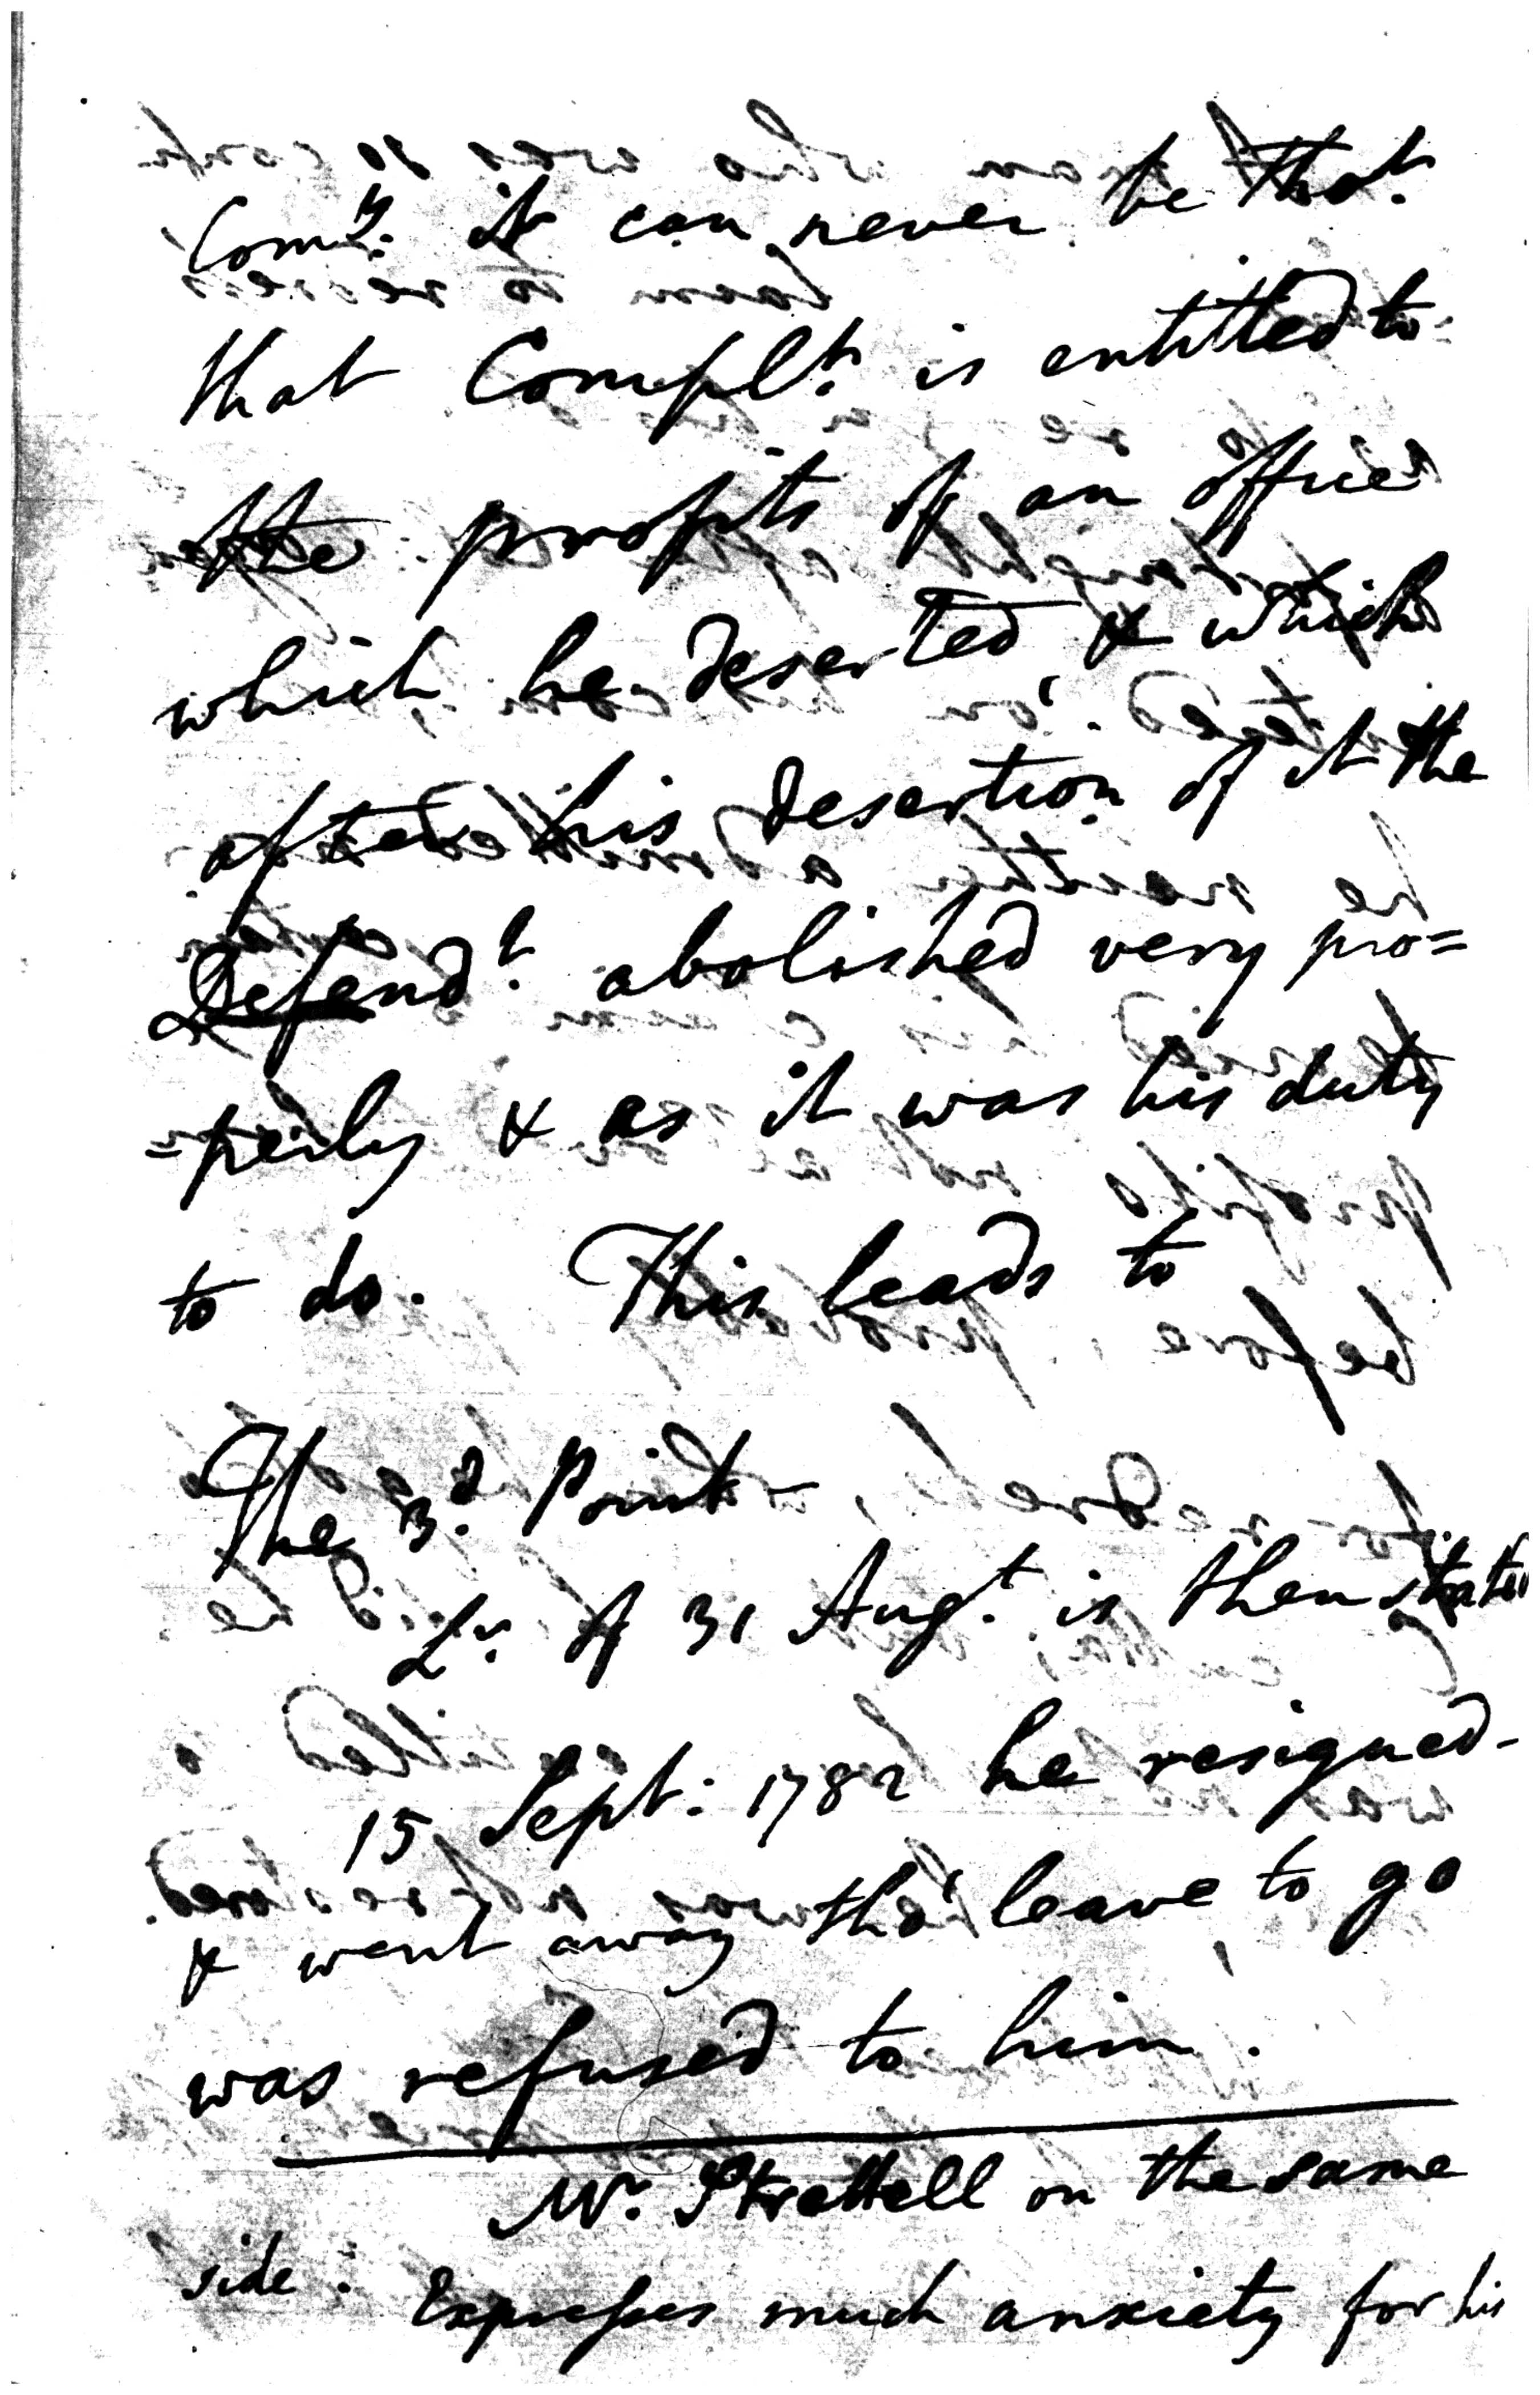 Comy. it can never be that
that Complt. is entitled to
the profits of an office
which he deserted, & which
after his desertion of it the
Defendt. abolished very pro=
=perly & as it was his duty
to do. This leads to
The 3d. Point
Lr. of 31 Augt. is then stated
15 Sept: 1782 he resigned-
& went away tho' leave to go
was refused to him.
Mr. Strettell on the same
side. Expresses much anxiety for his